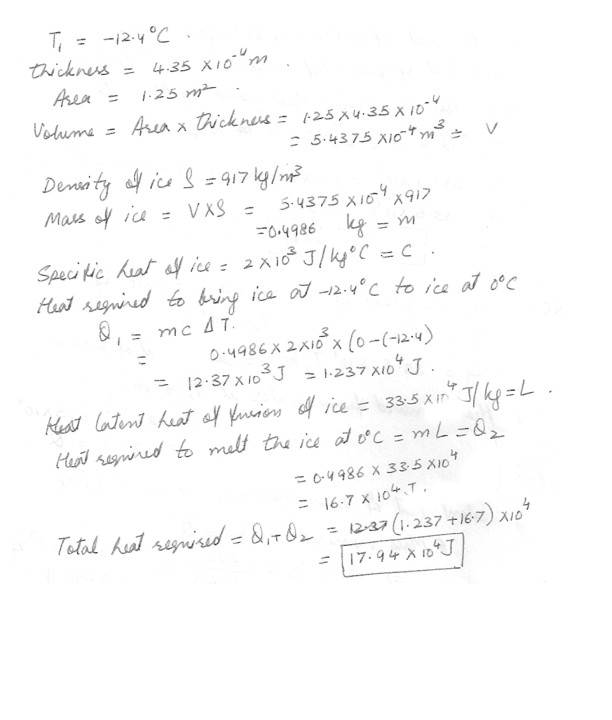 T₁ = -12.4°C.
thickness = 4.35 x10⁻⁴ m.
Area = 1.25 m².
Volume = Area x thickness = 1.25 x 4.35 x 10⁻⁴
= 5.4375 x10⁻⁴ m³ = V
Density of ice S = 917 kg/m³
Mass of ice = V x S = 5.4375 x 10⁻⁴ x 917
= 0.4986 kg = m
Specific heat of ice = 2 x 10³ J/kg°C = C.
Heat required to bring ice at -12.4°C to ice at 0°C
Q₁ = mc ΔT.
= 0.4986 x 2 x 10³ x (0-(-12.4)
= 12.37 x 10³ J = 1.237 x10⁴ J.
Heat latent heat of fusion of ice = 33.5 x 10⁴ J/kg = L.
Heat required to melt the ice at 0°C = mL = Q₂
= 0.4986 x 33.5 x10⁴
= 16.7 x 10⁴ J.
Total heat required = Q₁+Q₂ = 12.37 (1.237 +16.7) x10⁴
= 17.94 x 10⁴ J